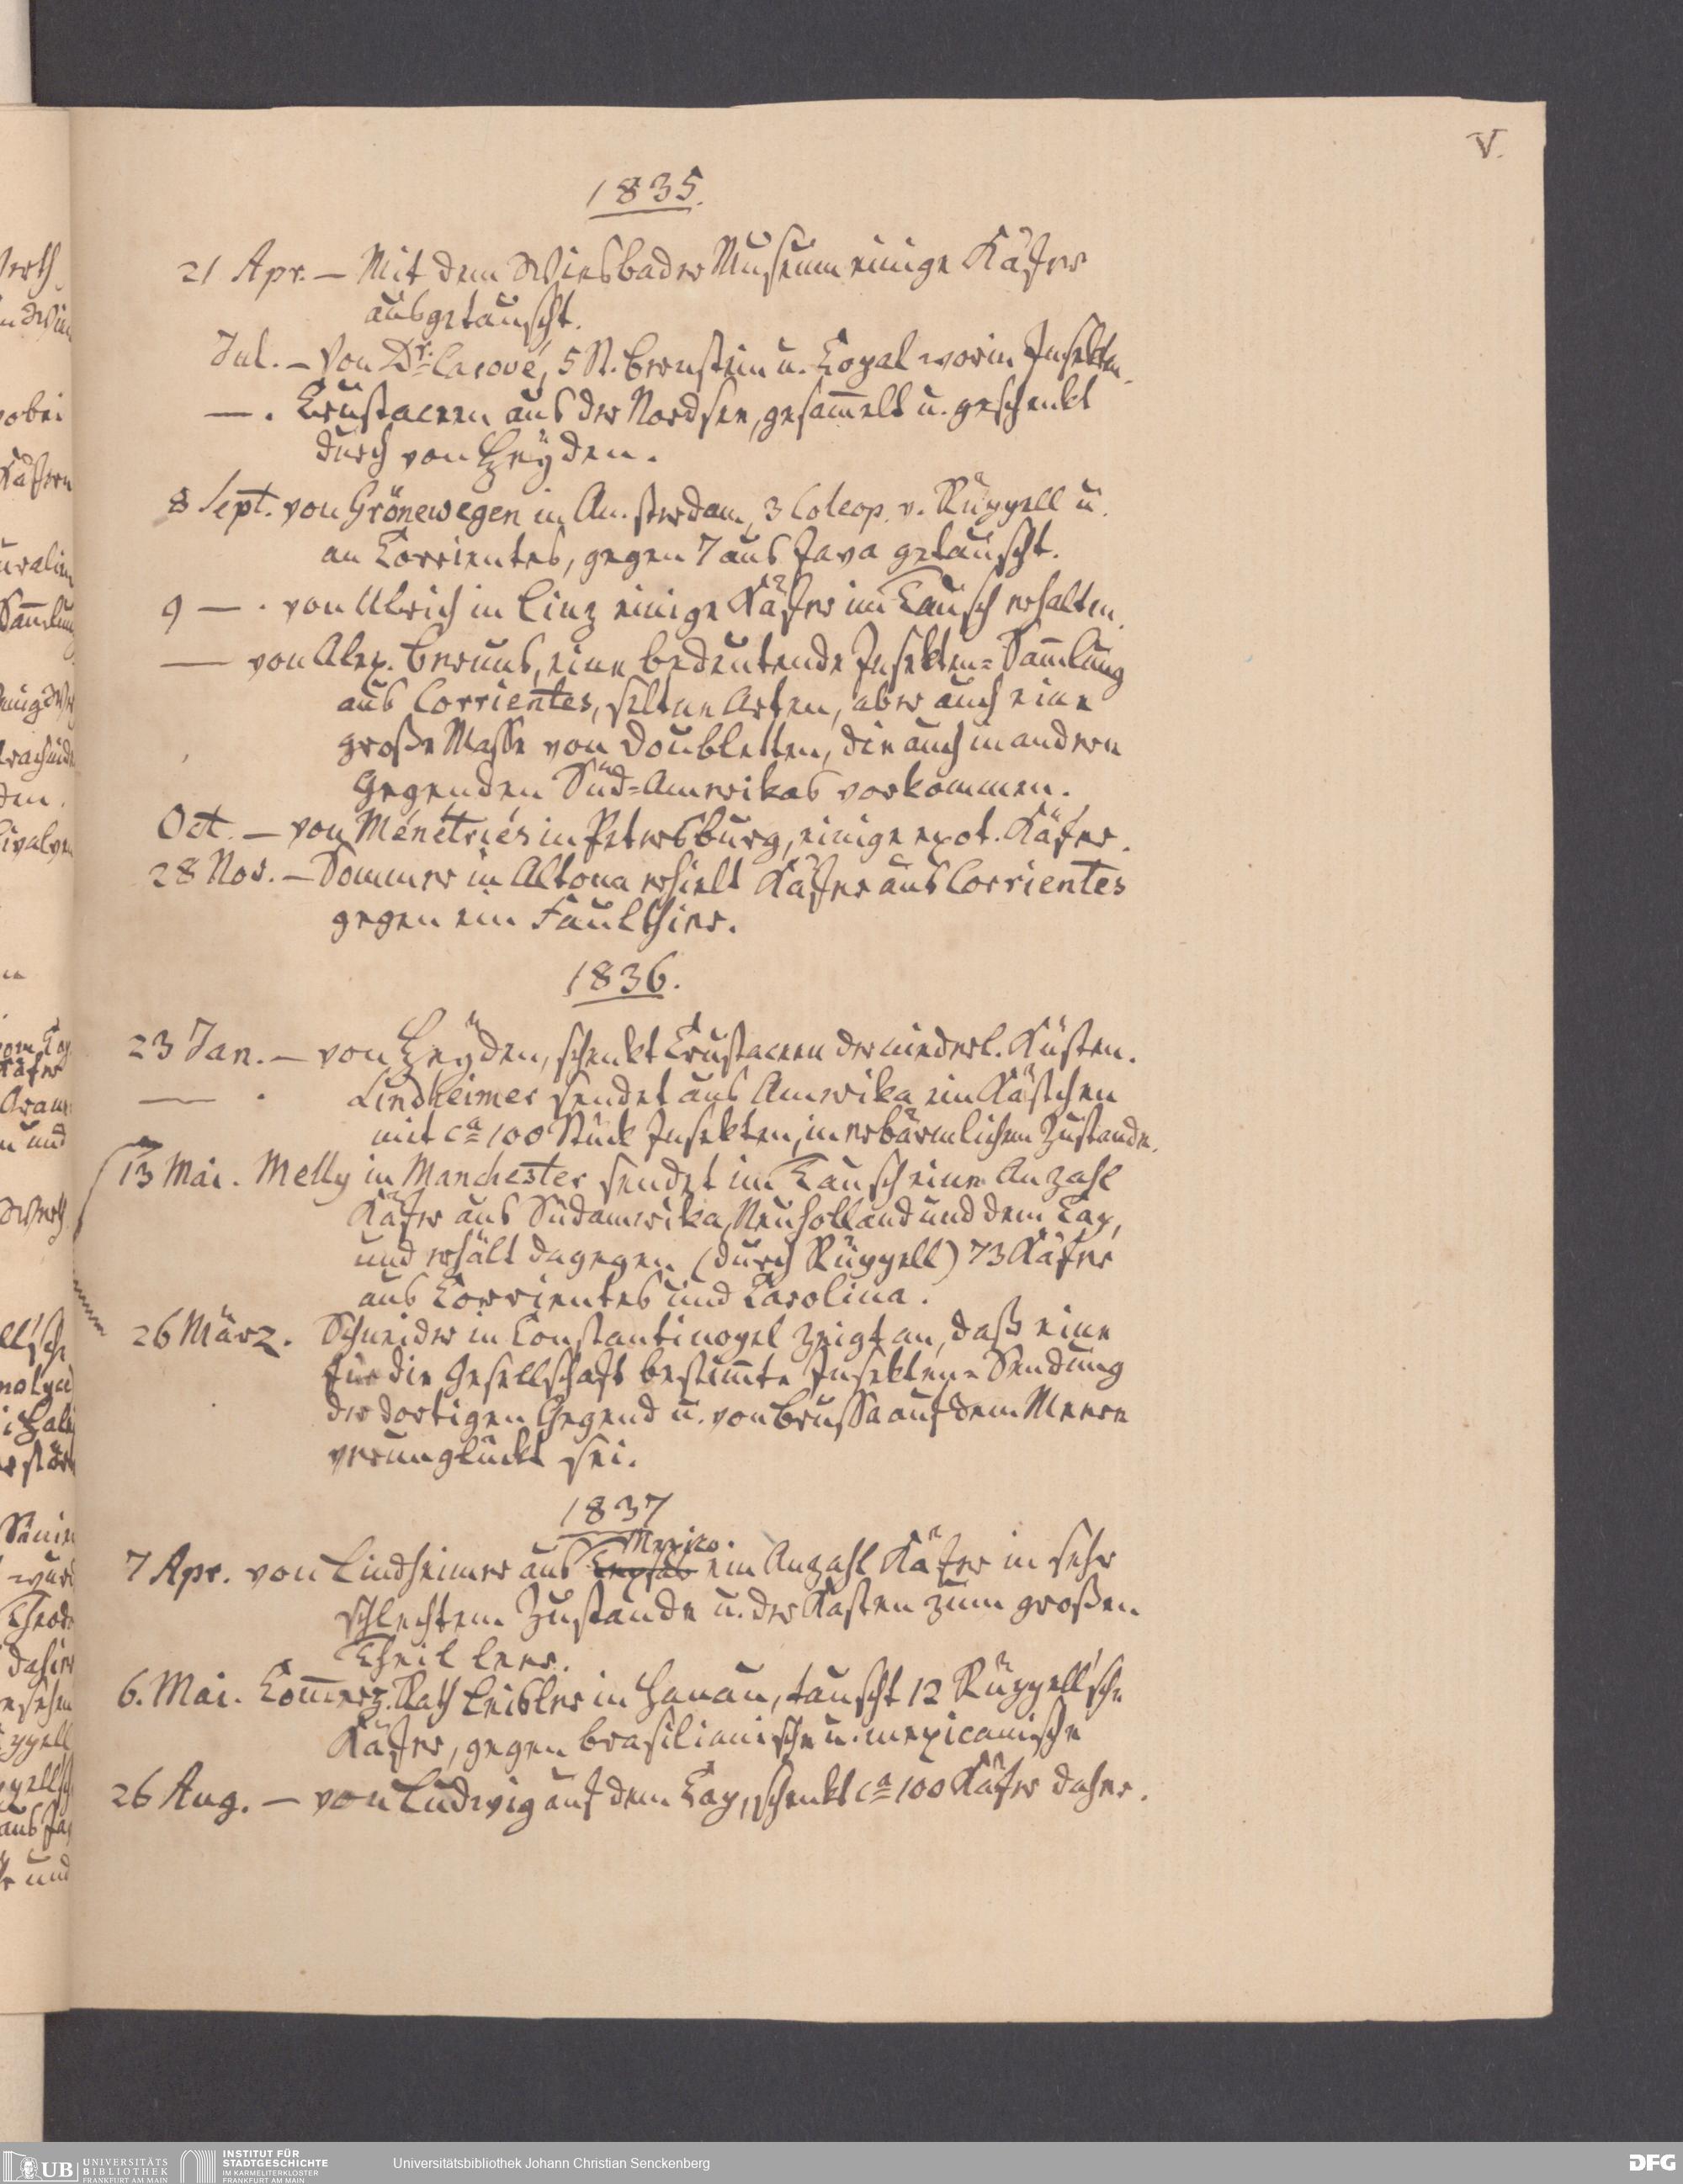 V.
1835.
21 Apr. – Mit dem Wiesbader Museum einige Käfer
ausgetauscht.
Jul. – Von Dr. Carové, 5 St. Bernstein u. Copal worin Insekten.
— . Crustaceen aus der Nordsee, gesam̄elt u. geschenkt
durch von Heÿden.
8 Sept. von Grönewegen in Amsterdam, 3 Coleop. v. Rüppell u.
an Corrientes, gegen 7 aus Java getauscht.
9 — . von Ulrich in Linz einige Käfer im Tausch erhalten.
— von Alex. Beruus, eine bedeutende Insekten=Sam̄lung
aus Corrientes, seltne Arten, aber auch eine
große Masse von Doubletten, die auch in andern
Gegenden Süd=Amerikas vorkommen.
Oct. – von Ménétriés in Petersburg, einige exot. Käfer.
28 Nov. – Sommer in Altona erhielt Käfer aus Corrientes
gegen ein Faulthier.
1836.
23 Jan. – von Heÿden, schenkt Crustaceen der niederl. Küsten.
— . Lindheimer sendet aus Amerika ein Kästchen
mit ca 100 Stück Insekten, in erbärmlichem Zustande.
13 Mai. Melly in Manchester sendet im Tausch eine Anzahl
Käfer aus Südamerika, Neuholland und dem Cap,
und erhält dagegen (durch Rüppell) 73 Käfer
aus Corrientes und Carolina.
26 März. Schneider in Constantinopel zeigt an, daß eine
für die Gesellschaft bestim̄te Insekten=Sendung
der dortigen Gegend u. von Brussa auf dem Meere
verunglückt sei.
1837
Mexico.
7 Apr. von Lindheimer aus ein Anzahl Käfer in sehr
schlechtem Zustande u. der Kasten zum großen
Theil leer.
6. Mai. Com̄erz. Rath Leisler in Hanau, tauscht 12 Rüppell'sche
Käfer, gegen brasilianische u. mexicanische
26 Aug. – von Ludwig auf dem Cap, schenkt ca 100 Käfer daher.
UB UNIVERSITÄTS
BIBLIOTHEK
FRANKFURT AM MAIN
INSTITUT FÜR
STADTGESCHICHTE
IM KARMELITERKLOSTER
FRANKFURT AM MAIN
Universitätsbibliothek Johann Christian Senckenberg
DFG